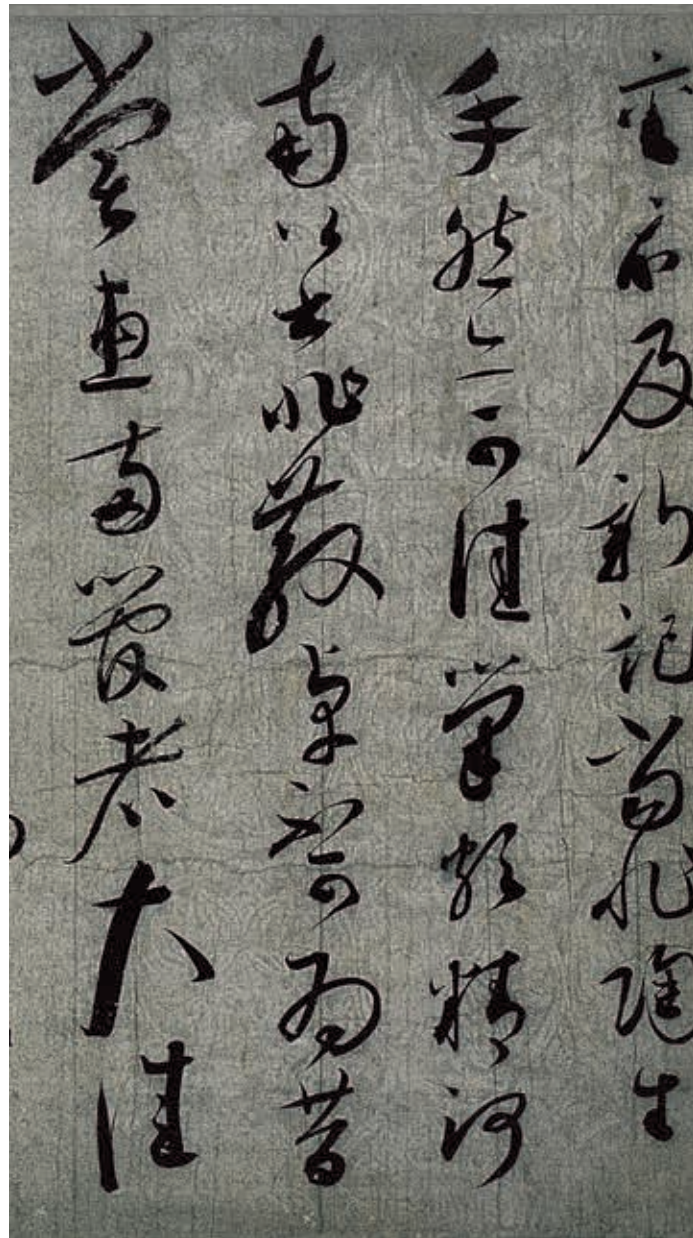 示及新記當非陶生
手然亦可佳筆頗精河
南公書非散卓不可為昔
嘗惠兩管者大佳